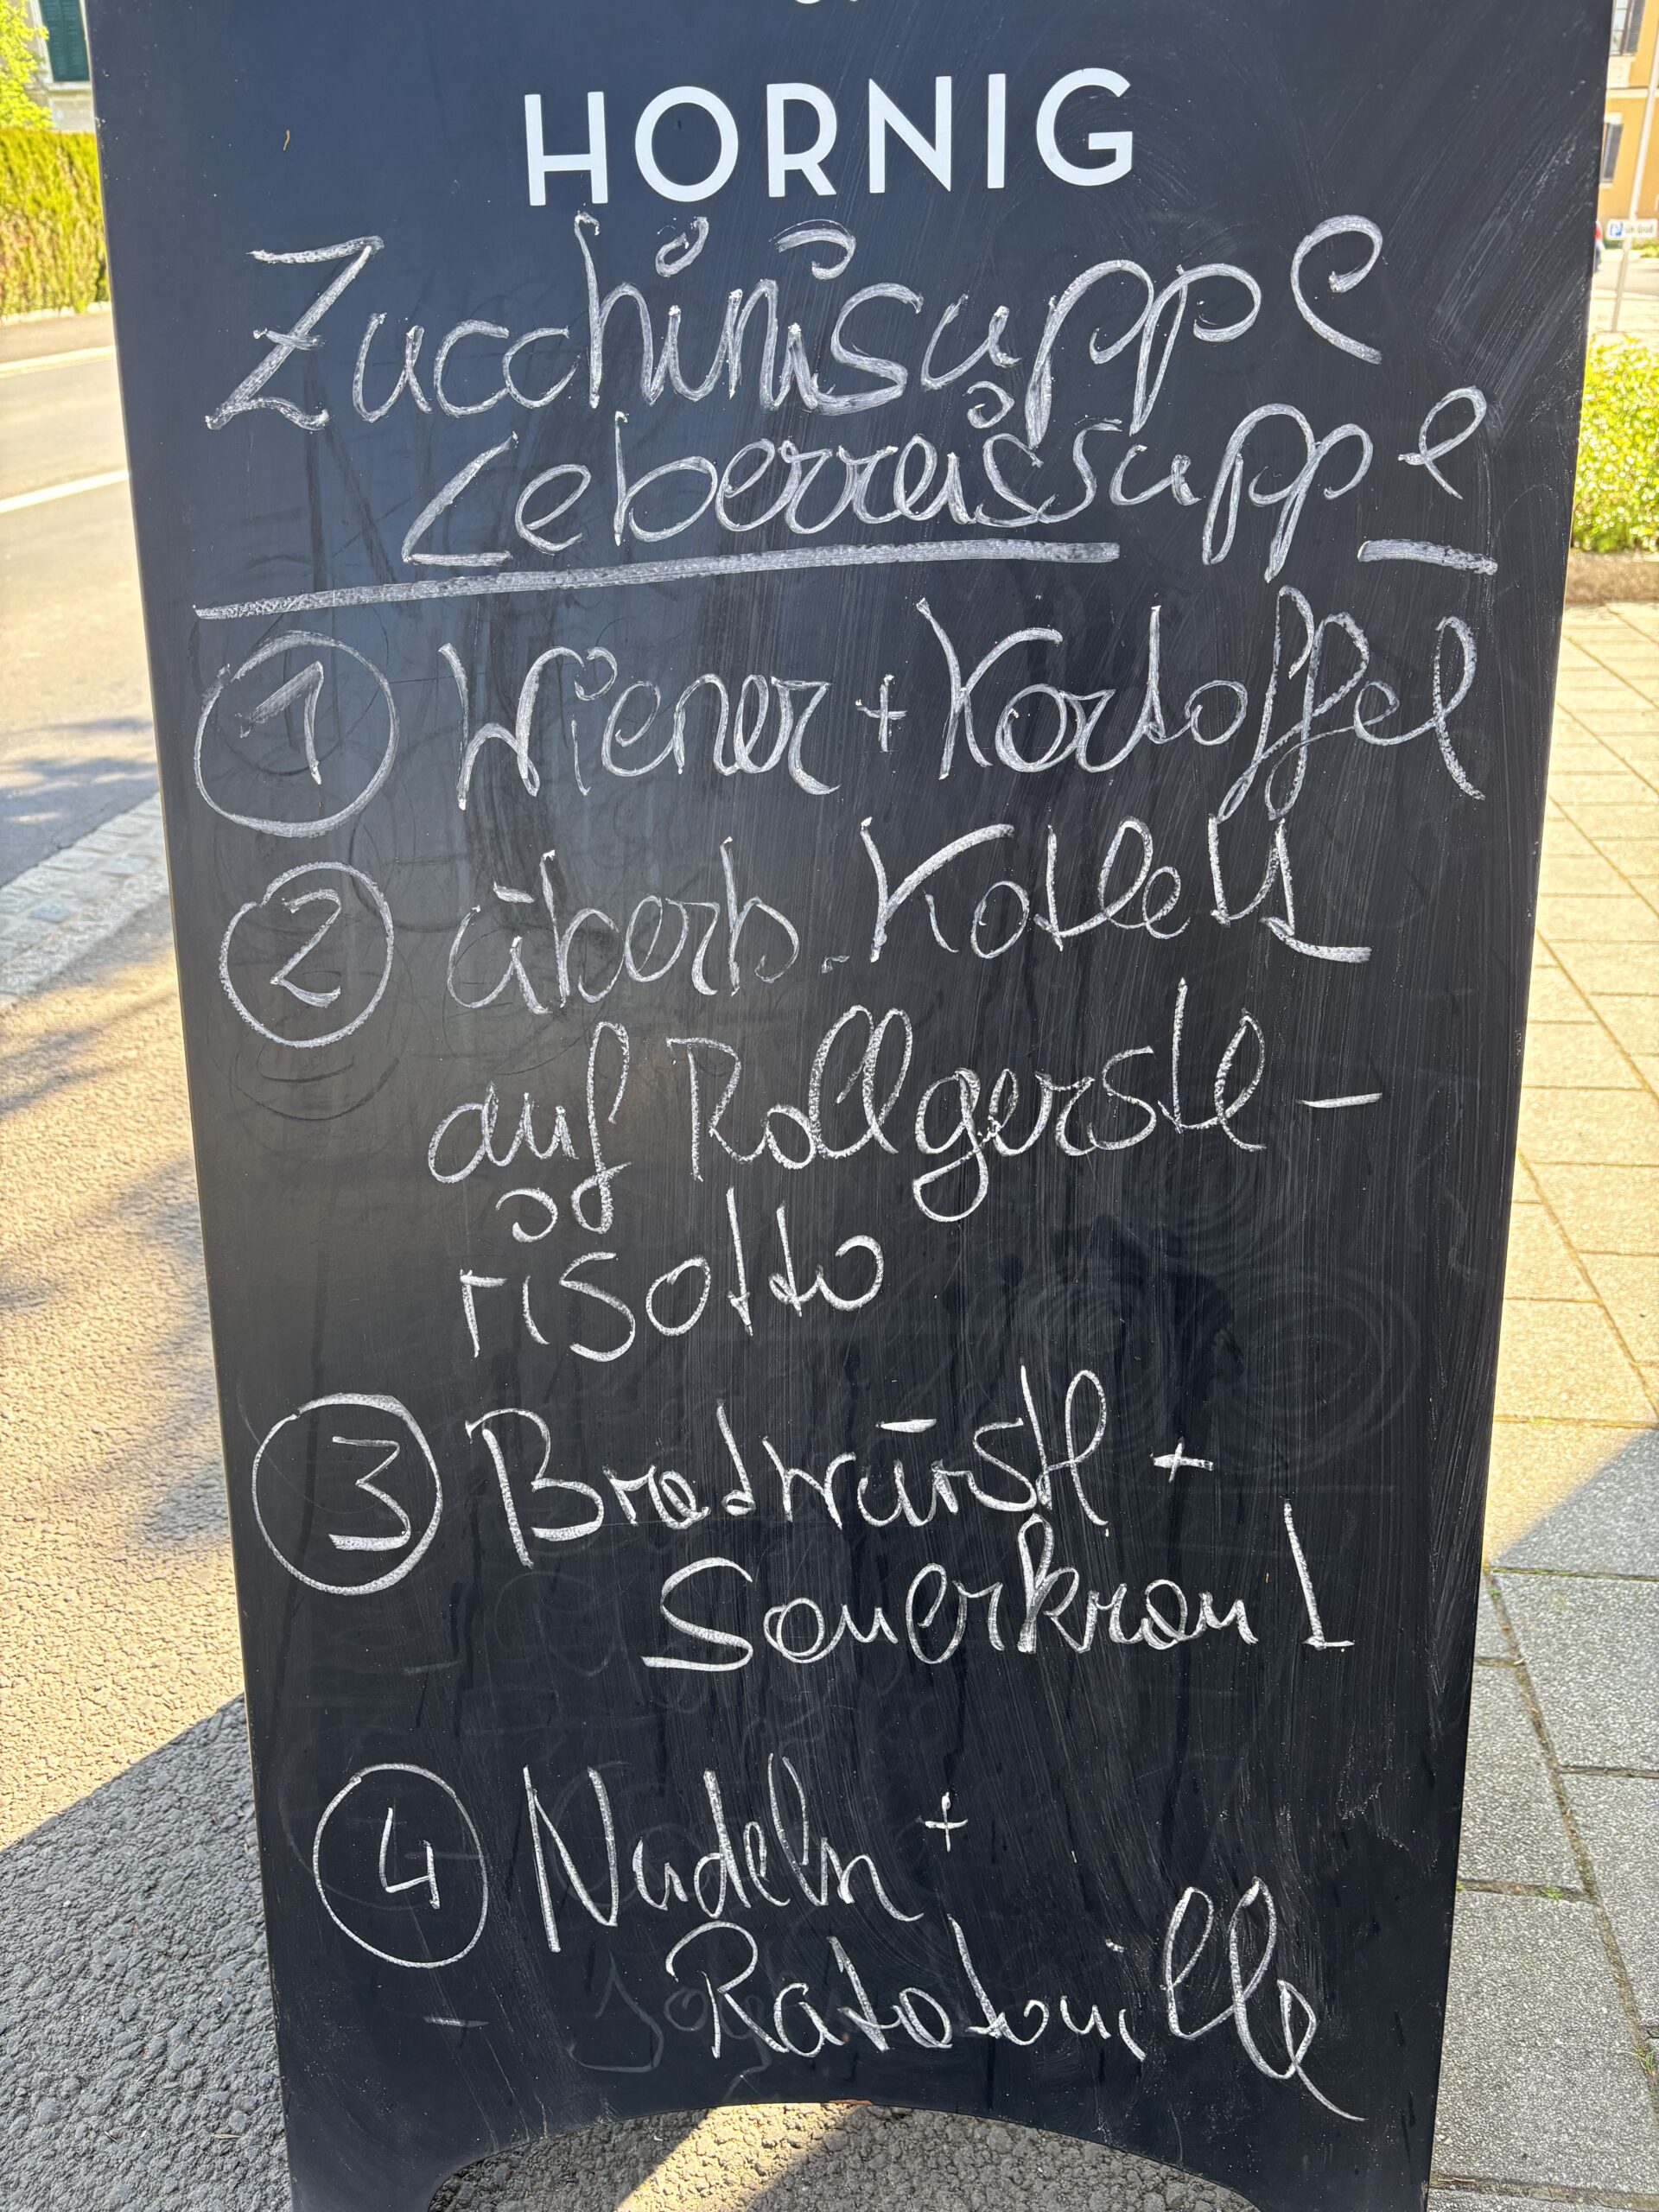 HORNIG
Zucchinisuppe
Leberreissuppe
① Wiener + Kartoffel
② überb. Kotelett
auf Rollgerstl-
risotto
③ Bratwürstl +
Sauerkraut
④ Nudeln +
Ratatouille